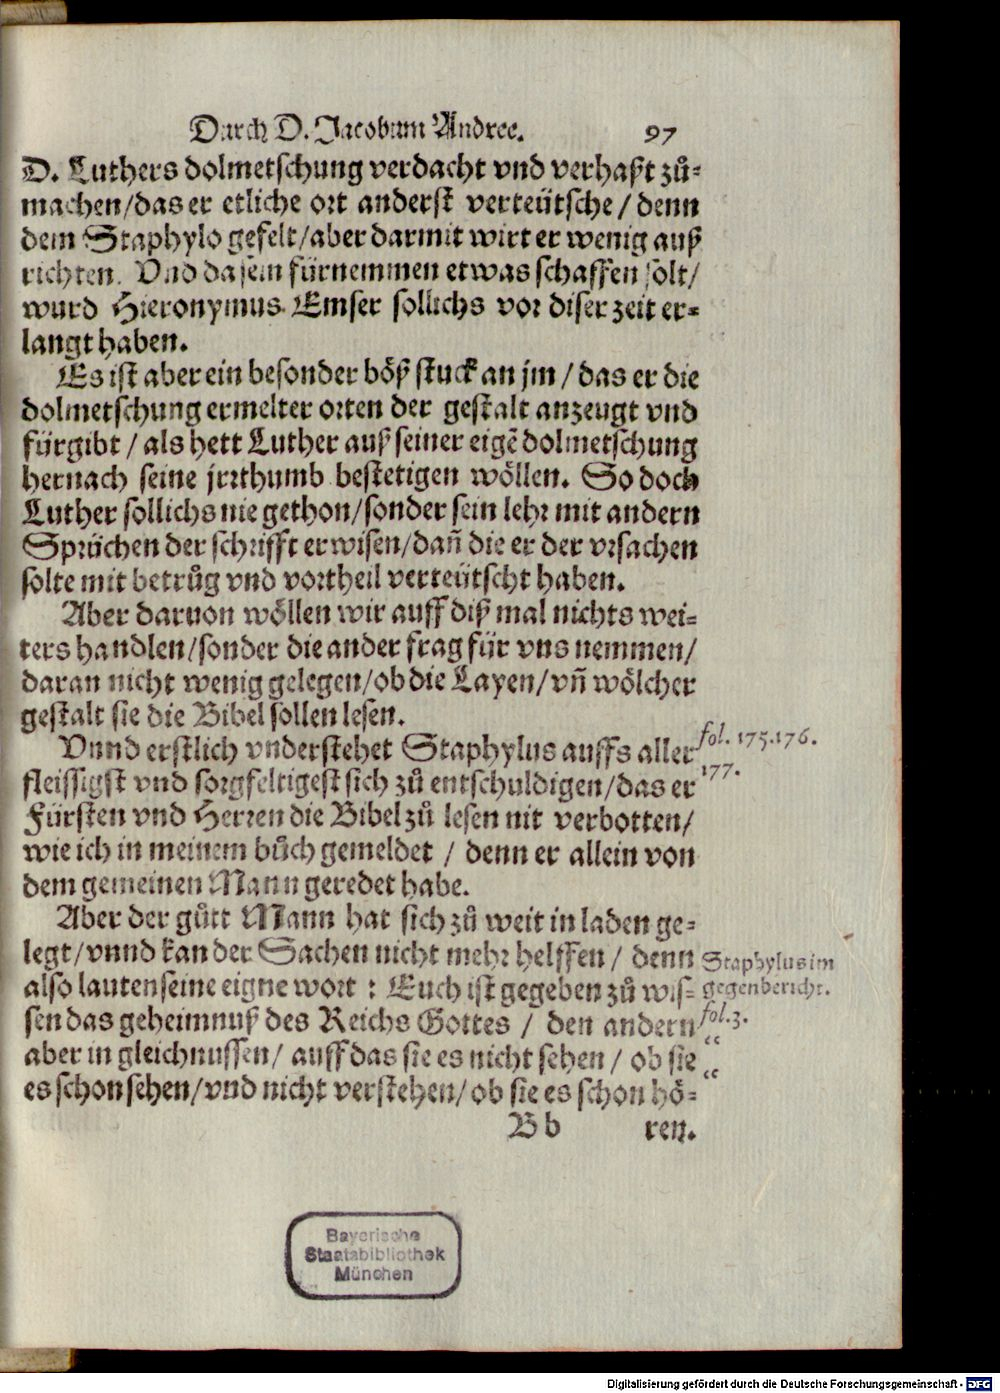 Durch D. Jacobum Andree. 97
D. Luthers dolmetschung verdacht vnd verhaßt zů-
machen/das er etliche ort anderst verteütsche/denn
dem Staphylo gefelt/aber darmit wirt er wenig auß
richten. Vnd da sein fürnemmen etwas schaffen solt/
wurd Hieronymus Emser sollichs vor diser zeit er-
langt haben.
Es ist aber ein besonder böß stuck an jm/das er die
dolmetschung ermelter orten der gestalt anzeugt vnd
fürgibt/als hett Luther auß seiner eigẽ dolmetschung
hernach seine jrrthumb bestetigen wöllen. So doch
Luther sollichs nie gethon/sonder sein lehr mit andern
Sprüchen der schrifft erwisen/dañ die er der vrsachen
solte mit betrůg vnd vortheil verteütscht haben.
Aber daruon wöllen wir auff diß mal nichts wei-
ters handlen/sonder die ander frag für vns nemmen/
daran nicht wenig gelegen/ob die Layen/vñ wölcher
gestalt sie die Bibel sollen lesen.
Vnnd erstlich vnderstehet Staphylus auffs aller
fleissigst vnd sorgfeltigest sich zů entschuldigen/das er
Fürsten vnd Herren die Bibel zů lesen nit verbotten/
wie ich in meinem bůch gemeldet/denn er allein von
dem gemeinen Mann geredet habe.
fol. 175.176.
177.
Aber der gůtt Mann hat sich zů weit in laden ge-
legt/vnnd kan der Sachen nicht mehr helffen/denn
also lauten seine eigne wort: Euch ist gegeben zů wis-
sen das geheimnuß des Reichs Gottes/den andern
aber in gleichnussen/auff das sie es nicht sehen/ob sie
es schon sehen/vnd nicht verstehen/ob sie es schon hö-
Staphylus im
gegenbericht.
fol.3.
“
“
Bb ren.
Bayerische
Staatsbibliothek
München
Digitalisierung gefördert durch die Deutsche Forschungsgemeinschaft - DFG